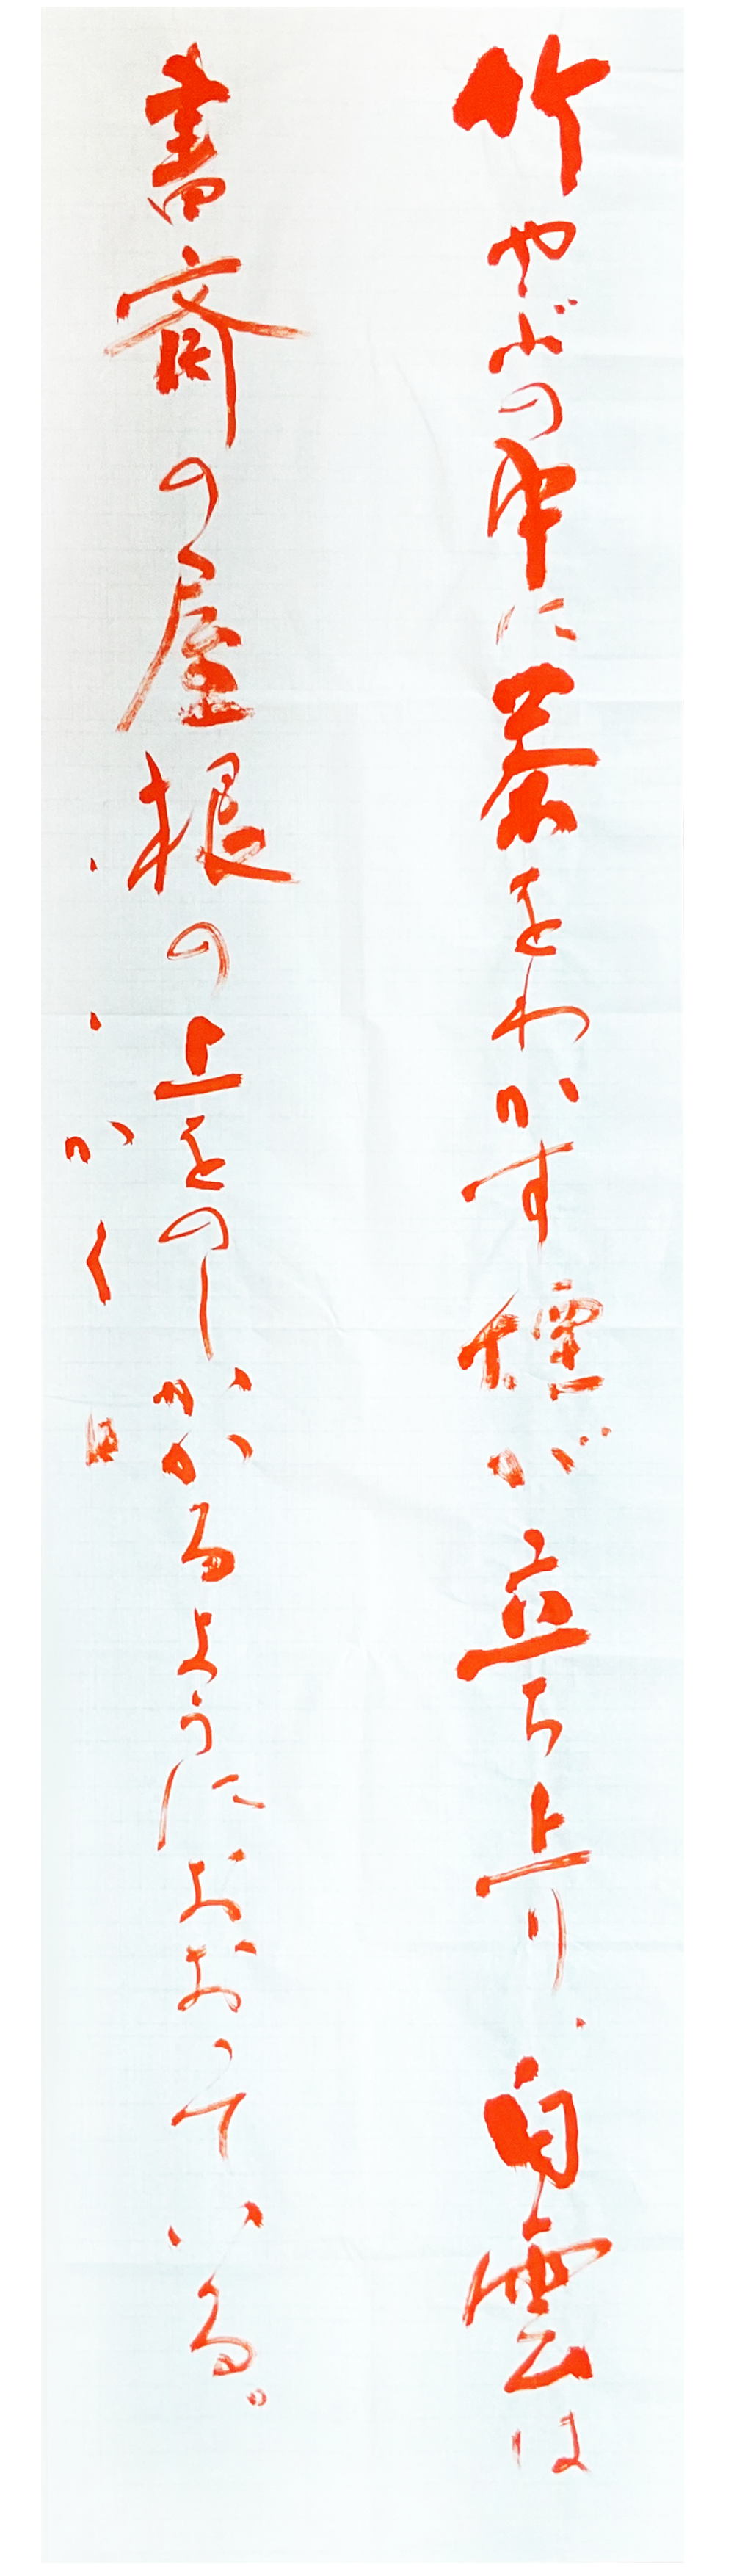 竹やぶの中に茶をわかす煙が立ち上り、白雲は
書斎の屋根の上をのしかかるようにおおっている。
かく